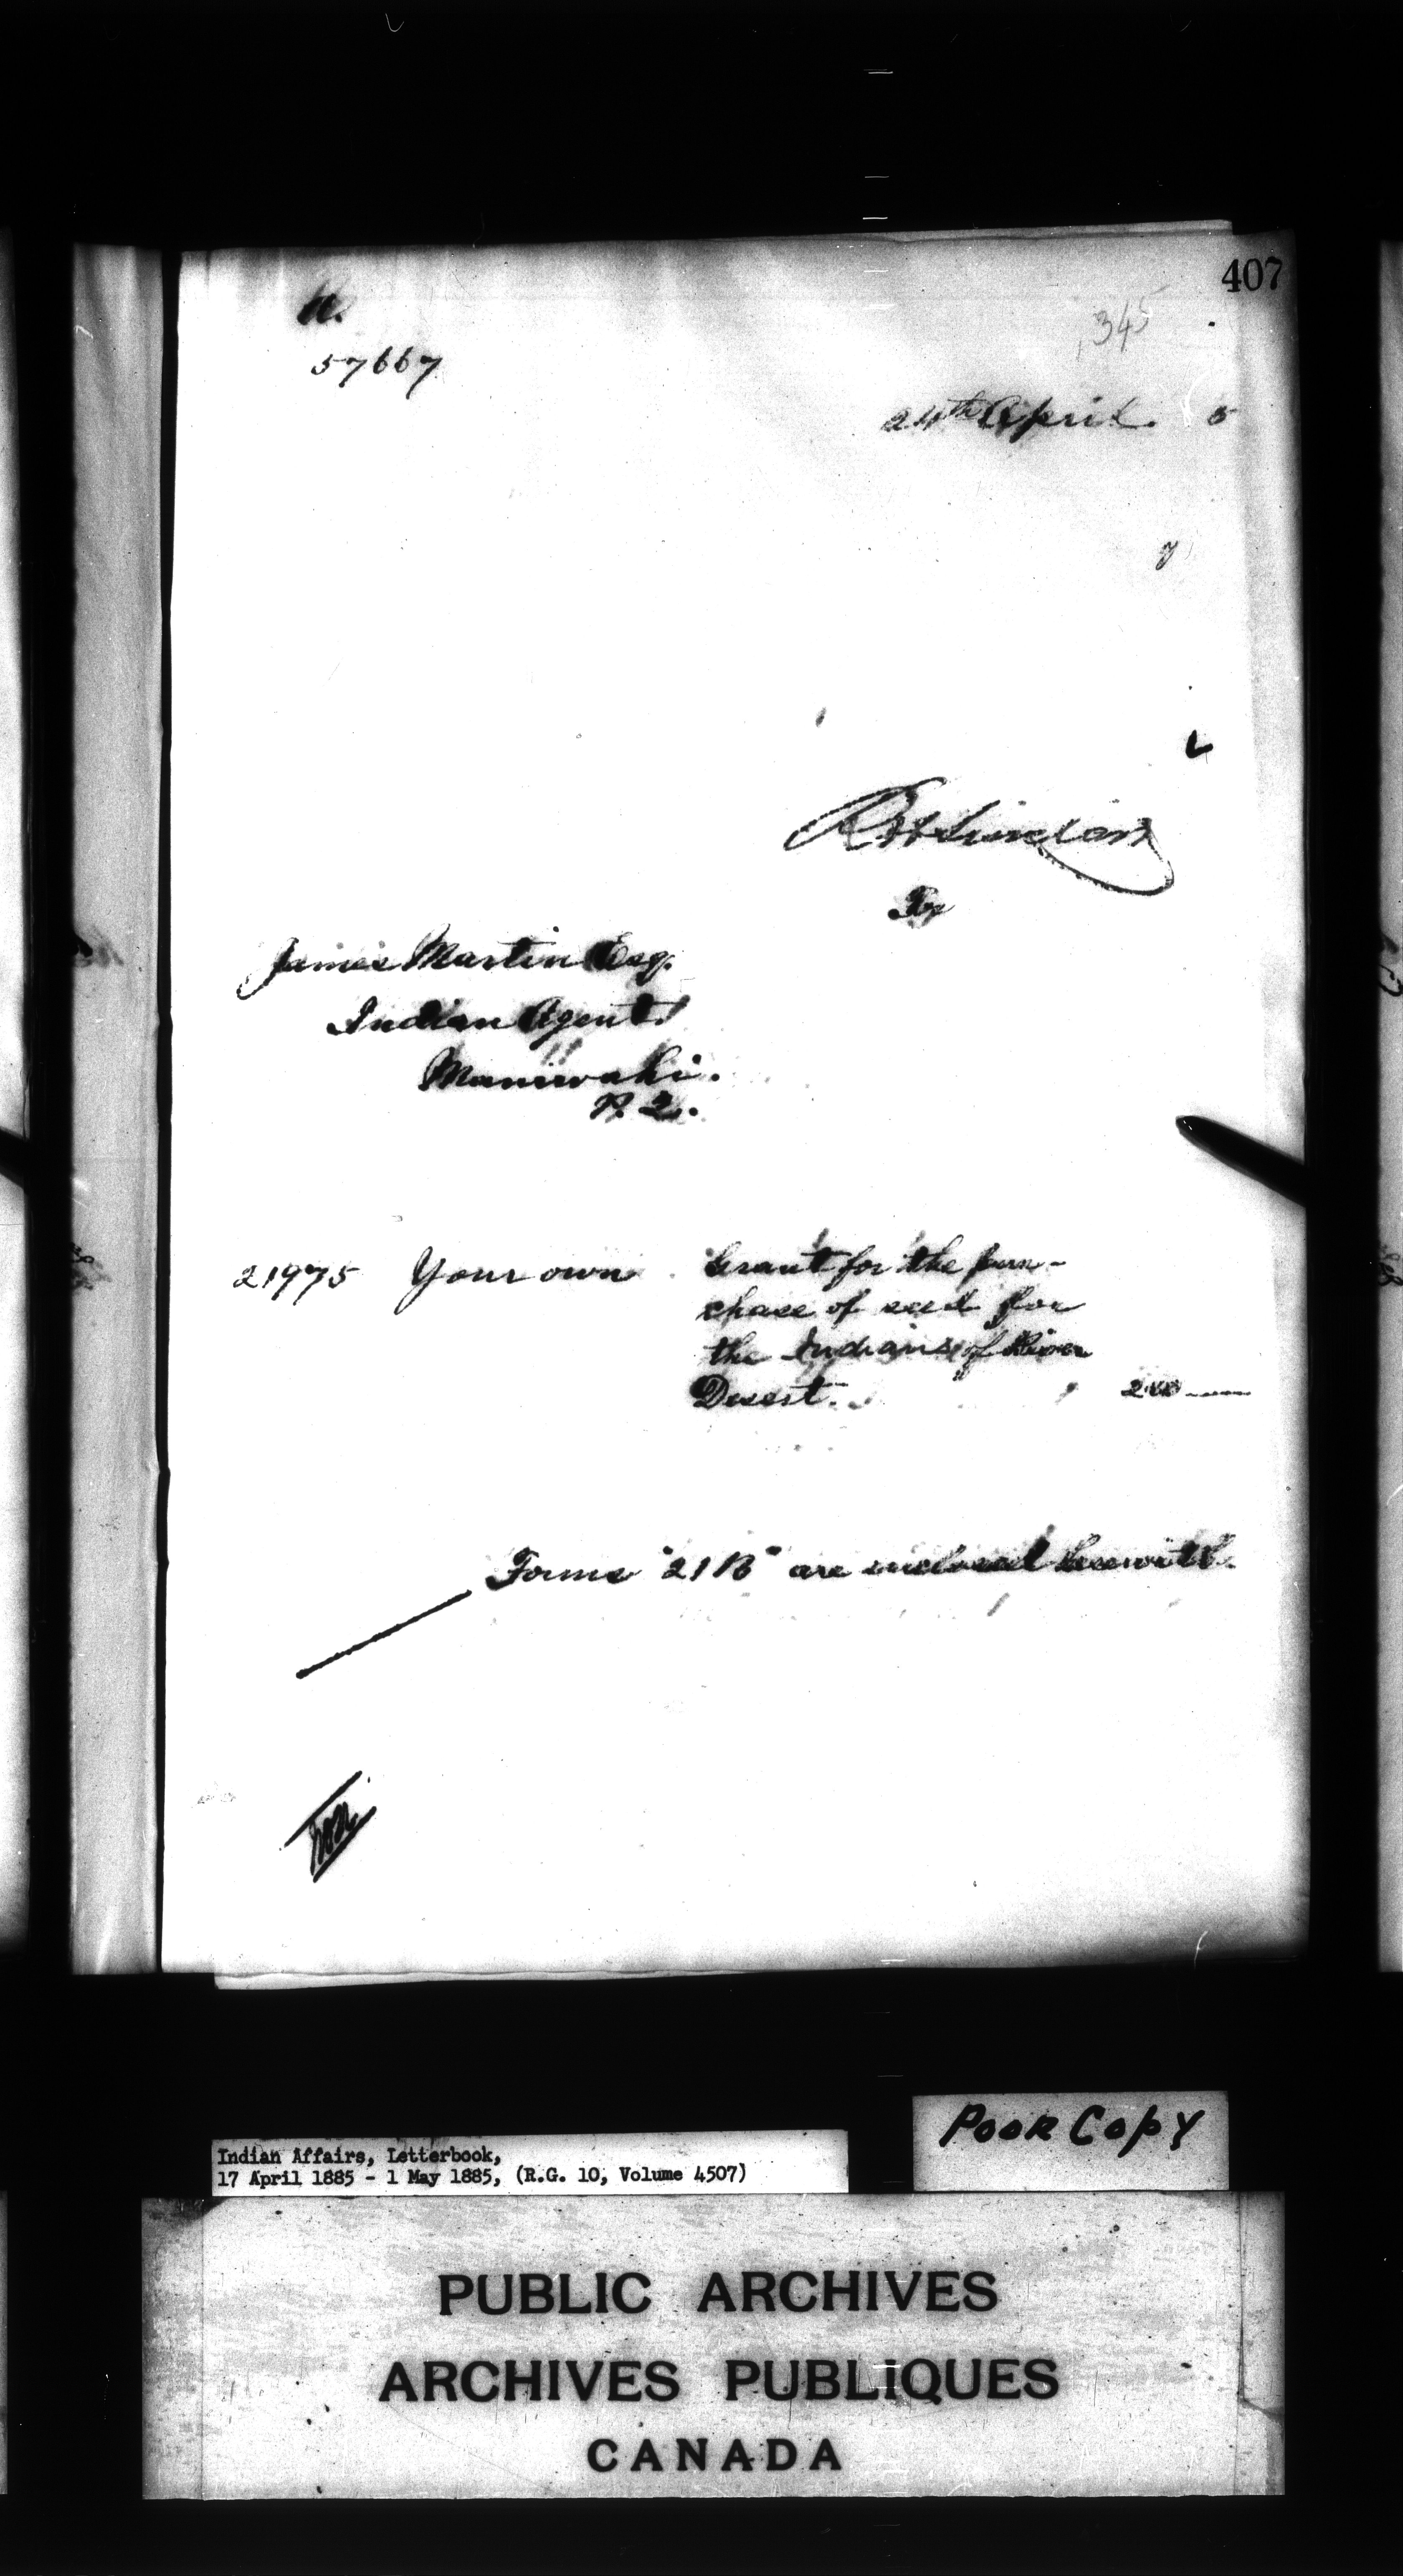 407
345
57667
24th April. 5
James Martin Esq.
Indian Agent
Maniwaki.
P.Q.
21975 Your own Grant for the pur-
chase of seed for
the Indians of River
Desert. 200
Forms "21B" are enclosed herewith.
POOR COPY
Indian Affairs, Letterbook,
17 April 1885 - 1 May 1885, (R.G. 10, Volume 4507)
PUBLIC ARCHIVES
ARCHIVES PUBLIQUES
CANADA